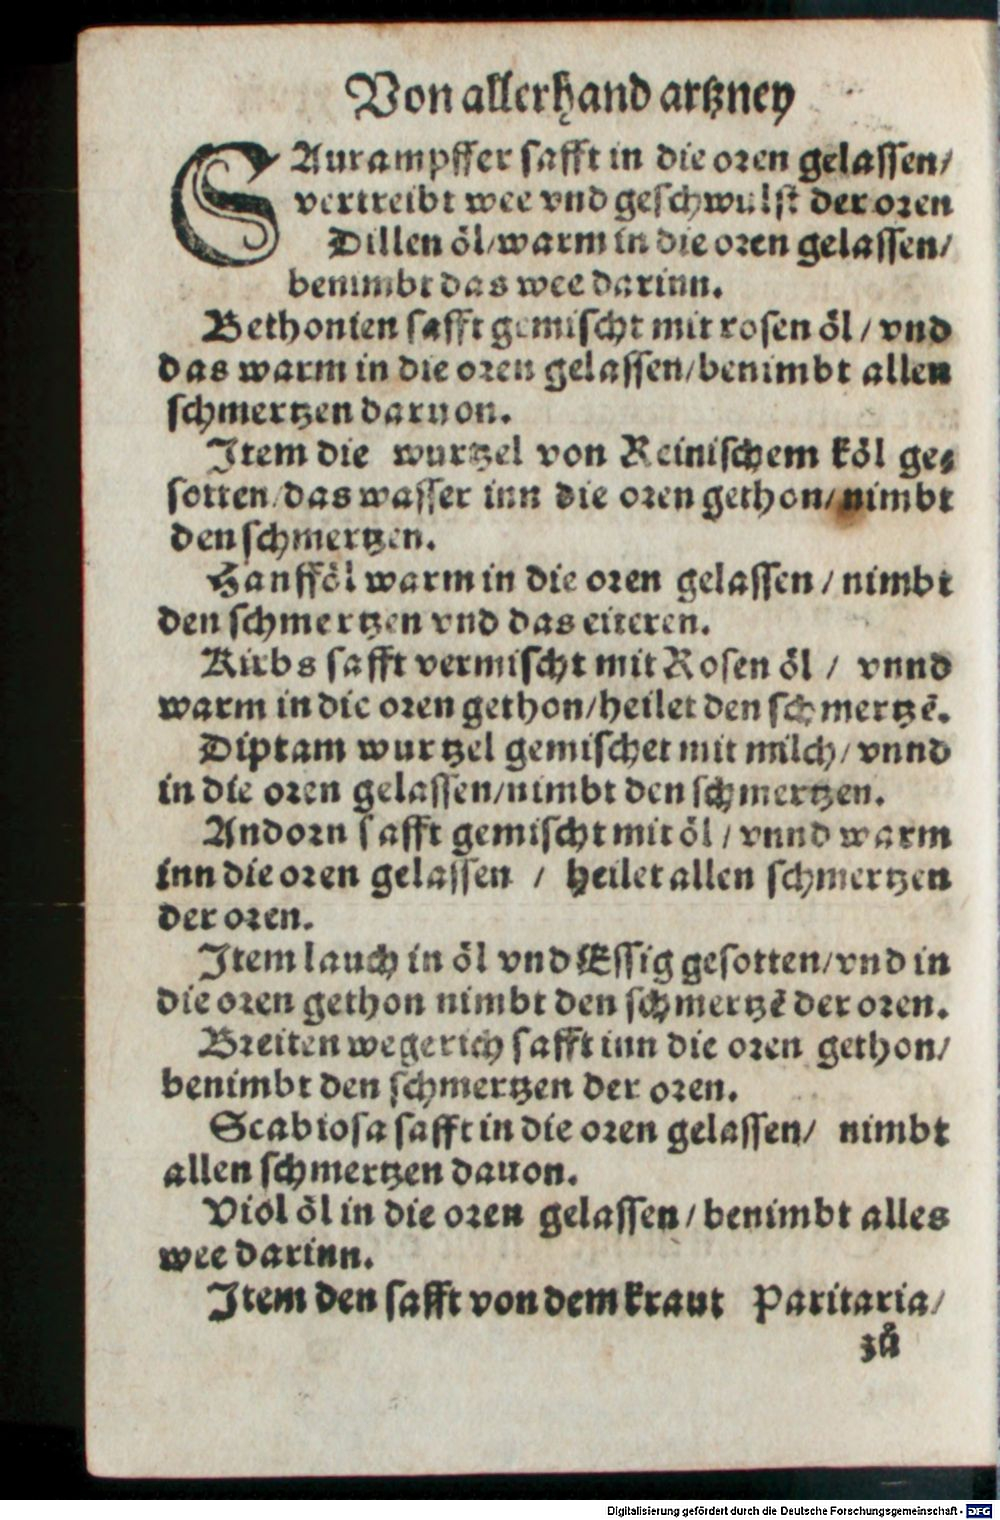 Von allerhand artzney
SAurampffer safft in die oren gelassen/
vertreibt wee vnd geschwulst der oren
Dillen öl/warm in die oren gelassen/
benimbt das wee darinn.
Bethonien safft gemischt mit rosen öl / vnd
das warm in die oren gelassen/benimbt allen
schmertzen daruon.
Item die wurtzel von Reinischem köl ge⸗
sotten/das wasser inn die oren gethon/nimbt
den schmertzen.
Hanfföl warm in die oren gelassen / nimbt
den schmertzen vnd das eiteren.
Kirbs safft vermischt mit Rosen öl / vnnd
warm in die oren gethon/heilet den schmertzẽ.
Diptam wurtzel gemischet mit milch/ vnnd
in die oren gelassen/nimbt den schmertzen.
Andorn safft gemischt mit öl / vnnd warm
inn die oren gelassen / heilet allen schmertzen
der oren.
Item lauch in öl vnd Essig gesotten/vnd in
die oren gethon nimbt den schmertzẽ der oren.
Breiten wegerich safft inn die oren gethon/
benimbt den schmertzen der oren.
Scabiosa safft in die oren gelassen/ nimbt
allen schmertzen dauon.
Viol öl in die oren gelassen / benimbt alles
wee darinn.
Item den safft von dem kraut Paritaria/
zů
Digitalisierung gefördert durch die Deutsche Forschungsgemeinschaft - DFG